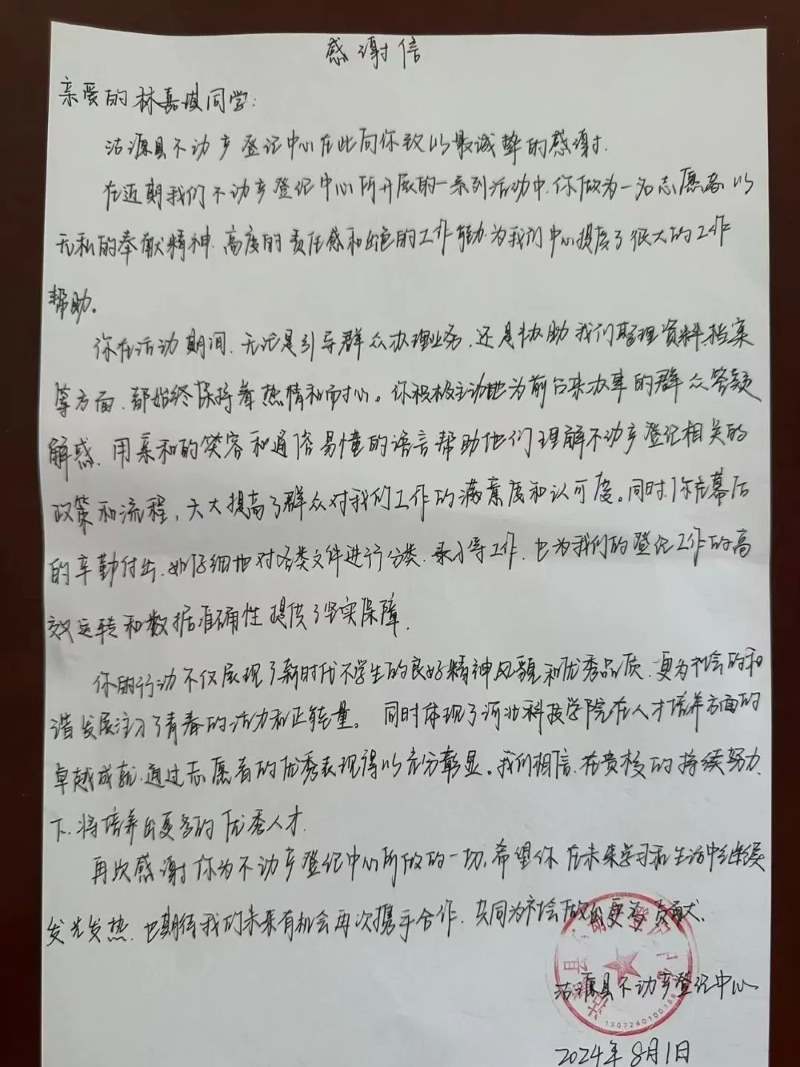 感谢信
亲爱的林嘉坡同学:
沽源县不动产登记中心在此向你致以最诚挚的感谢.
在近期我们不动产登记中心所开展的一系列活动中.你做为一名志愿者.以
无私的奉献精神.高度的责任感和出色的工作能力.为我们中心提度了很大的工作
帮助。
你在活动期间.无论是引导群众办理业务,还是协助我们整理资料.档案
等方面.都始终保持着热情和耐心。你积极主动地为前台来办事的群众答疑
解惑.用亲和的笑容和通俗易懂的语言帮助他们理解不动产登记相关的
政策和流程,大大提高了群众对我们工作的满意度和认可度。同时.你在幕后
的辛勤付出.如仔细地对各类文件进行分类.录入等工作.也为我们的登记工作的高
效运转和数据准确性提供了坚实保障.
你的行动不仅展现了新时代大学生的良好精神风貌和优秀品质.更为社会的和
谐发展注入了青春的活力和正能量。同时体现了河北科技学院在人才培养方面的
卓越成就.通过志愿者的优秀表现得以充分彰显。我们相信.在贵校的持续努力
下.将培养出更多的优秀人才.
再次感谢你为不动产登记中心所做的一切.希望你在未来学习和生活中继续
发光发热.也期待我们未来有机会再次携手合作.共同为社会做出更多贡献.
沽源县不动产登记中心
2024年8月1日